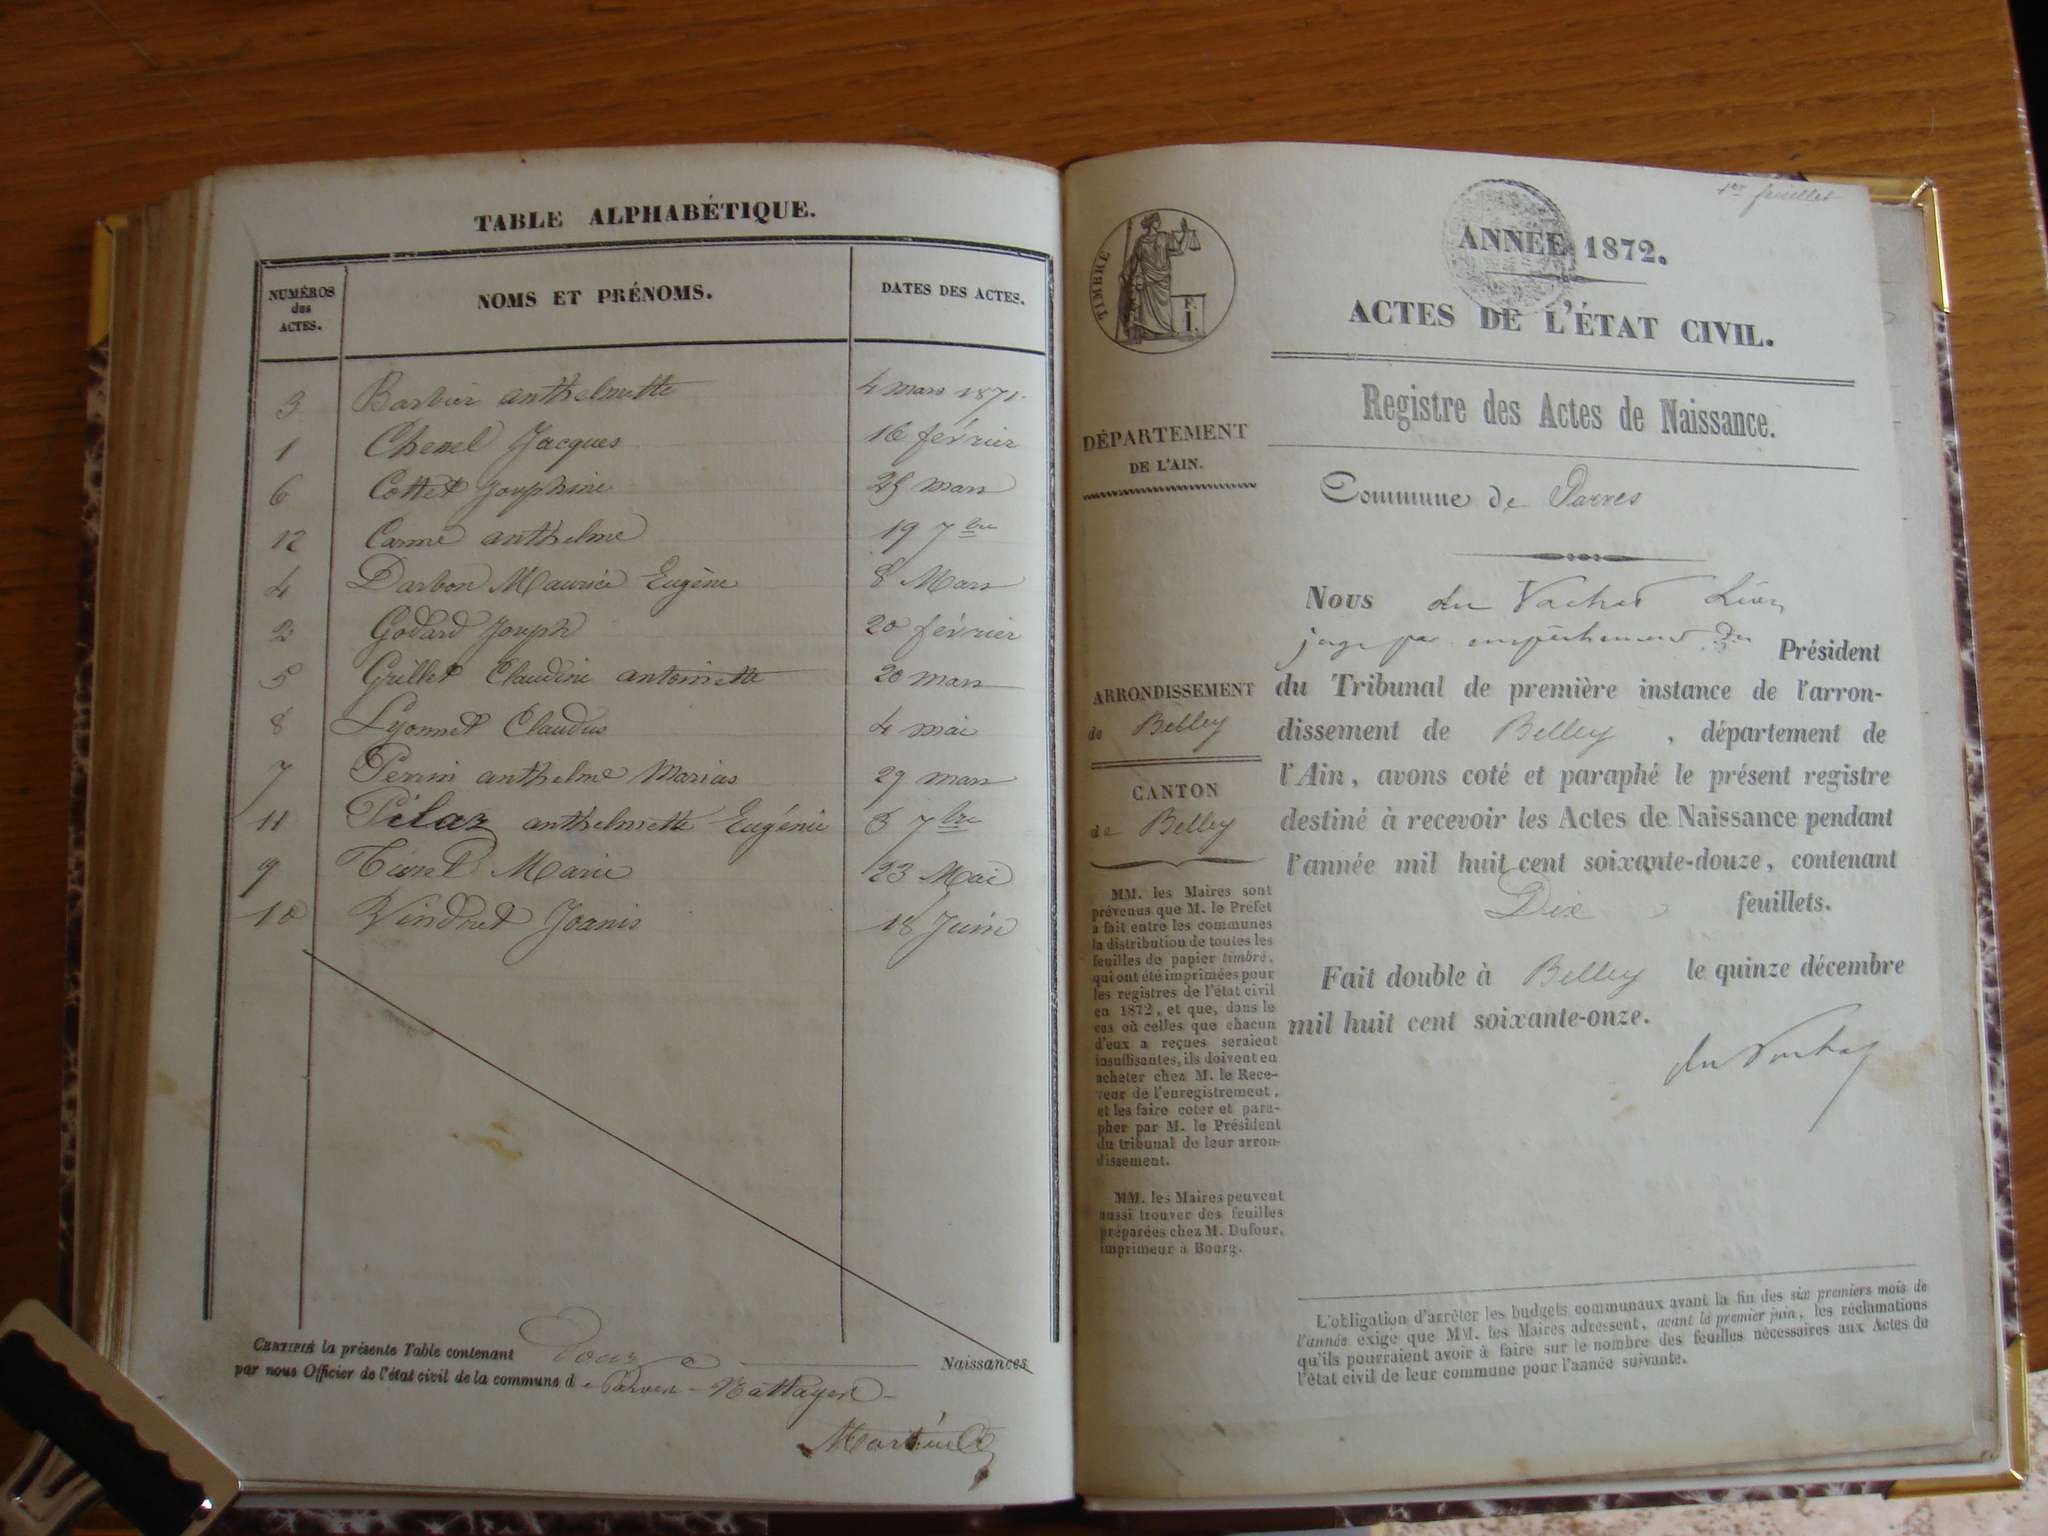 TABLE ALPHABÉTIQUE.
NUMÉROS des ACTES. NOMS ET PRÉNOMS. DATES DES ACTES.
3 Barbier anthelmette 4 mars 1871.
1 Chenel Jacques 16 février
6 Cottet Josephine 25 mars
12 Carme anthelme 19 7bre
4 Darbon Maurice Eugène 8 Mars
2 Godard Joseph 20 février
5 Grillet Claudine antoinette 20 mars
8 Lyonnet Claudius 4 mai
7 Perrin anthelme Marius 29 mars
11 Pélaz anthelmette Eugénie 8 7bre
9 Marie 23 Mai
10 Vindret Joanis 18 Juin
CERTIFIÉ la présente Table contenant Douze Naissances
par nous Officier de l'état civil de la commune de Parves-Nattages
1er feuillet
TIMBRE
F. I.
ANNÉE 1872.
ACTES DE L'ÉTAT CIVIL.
Registre des Actes de Naissance.
DÉPARTEMENT
DE L'AIN.
Commune de Parves
ARRONDISSEMENT
de Belley
CANTON
de Belley
MM. les Maires sont
prévenus que M. le Préfet
a fait entre les communes
la distribution de toutes les
feuilles de papier timbré,
qui ont été imprimées pour
les registres de l'état civil
en 1872, et que, dans le
cas où celles que chacun
d'eux a reçues seraient
insuffisantes, ils doivent en
acheter chez M. le Rece-
veur de l'enregistrement,
et les faire coter et para-
pher par M. le Président
du tribunal de leur arron-
dissement.
MM. les Maires peuvent
aussi trouver des feuilles
préparées chez M. Dufour,
imprimeur à Bourg.
Nous du Vachat Léon
juge par empêchement du Président
du Tribunal de première instance de l'arron-
dissement de Belley, département de
l'Ain, avons coté et paraphé le présent registre
destiné à recevoir les Actes de Naissance pendant
l'année mil huit cent soixante-douze, contenant
Dix feuillets.
Fait double à Belley le quinze décembre
mil huit cent soixante-onze.
du Vachat
L'obligation d'arrêter les budgets communaux avant la fin des six premiers mois de
l'année exige que MM. les Maires adressent, avant le premier juin, les réclamations
qu'ils pourraient avoir à faire sur le nombre des feuilles nécessaires aux Actes de
l'état civil de leur commune pour l'année suivante.